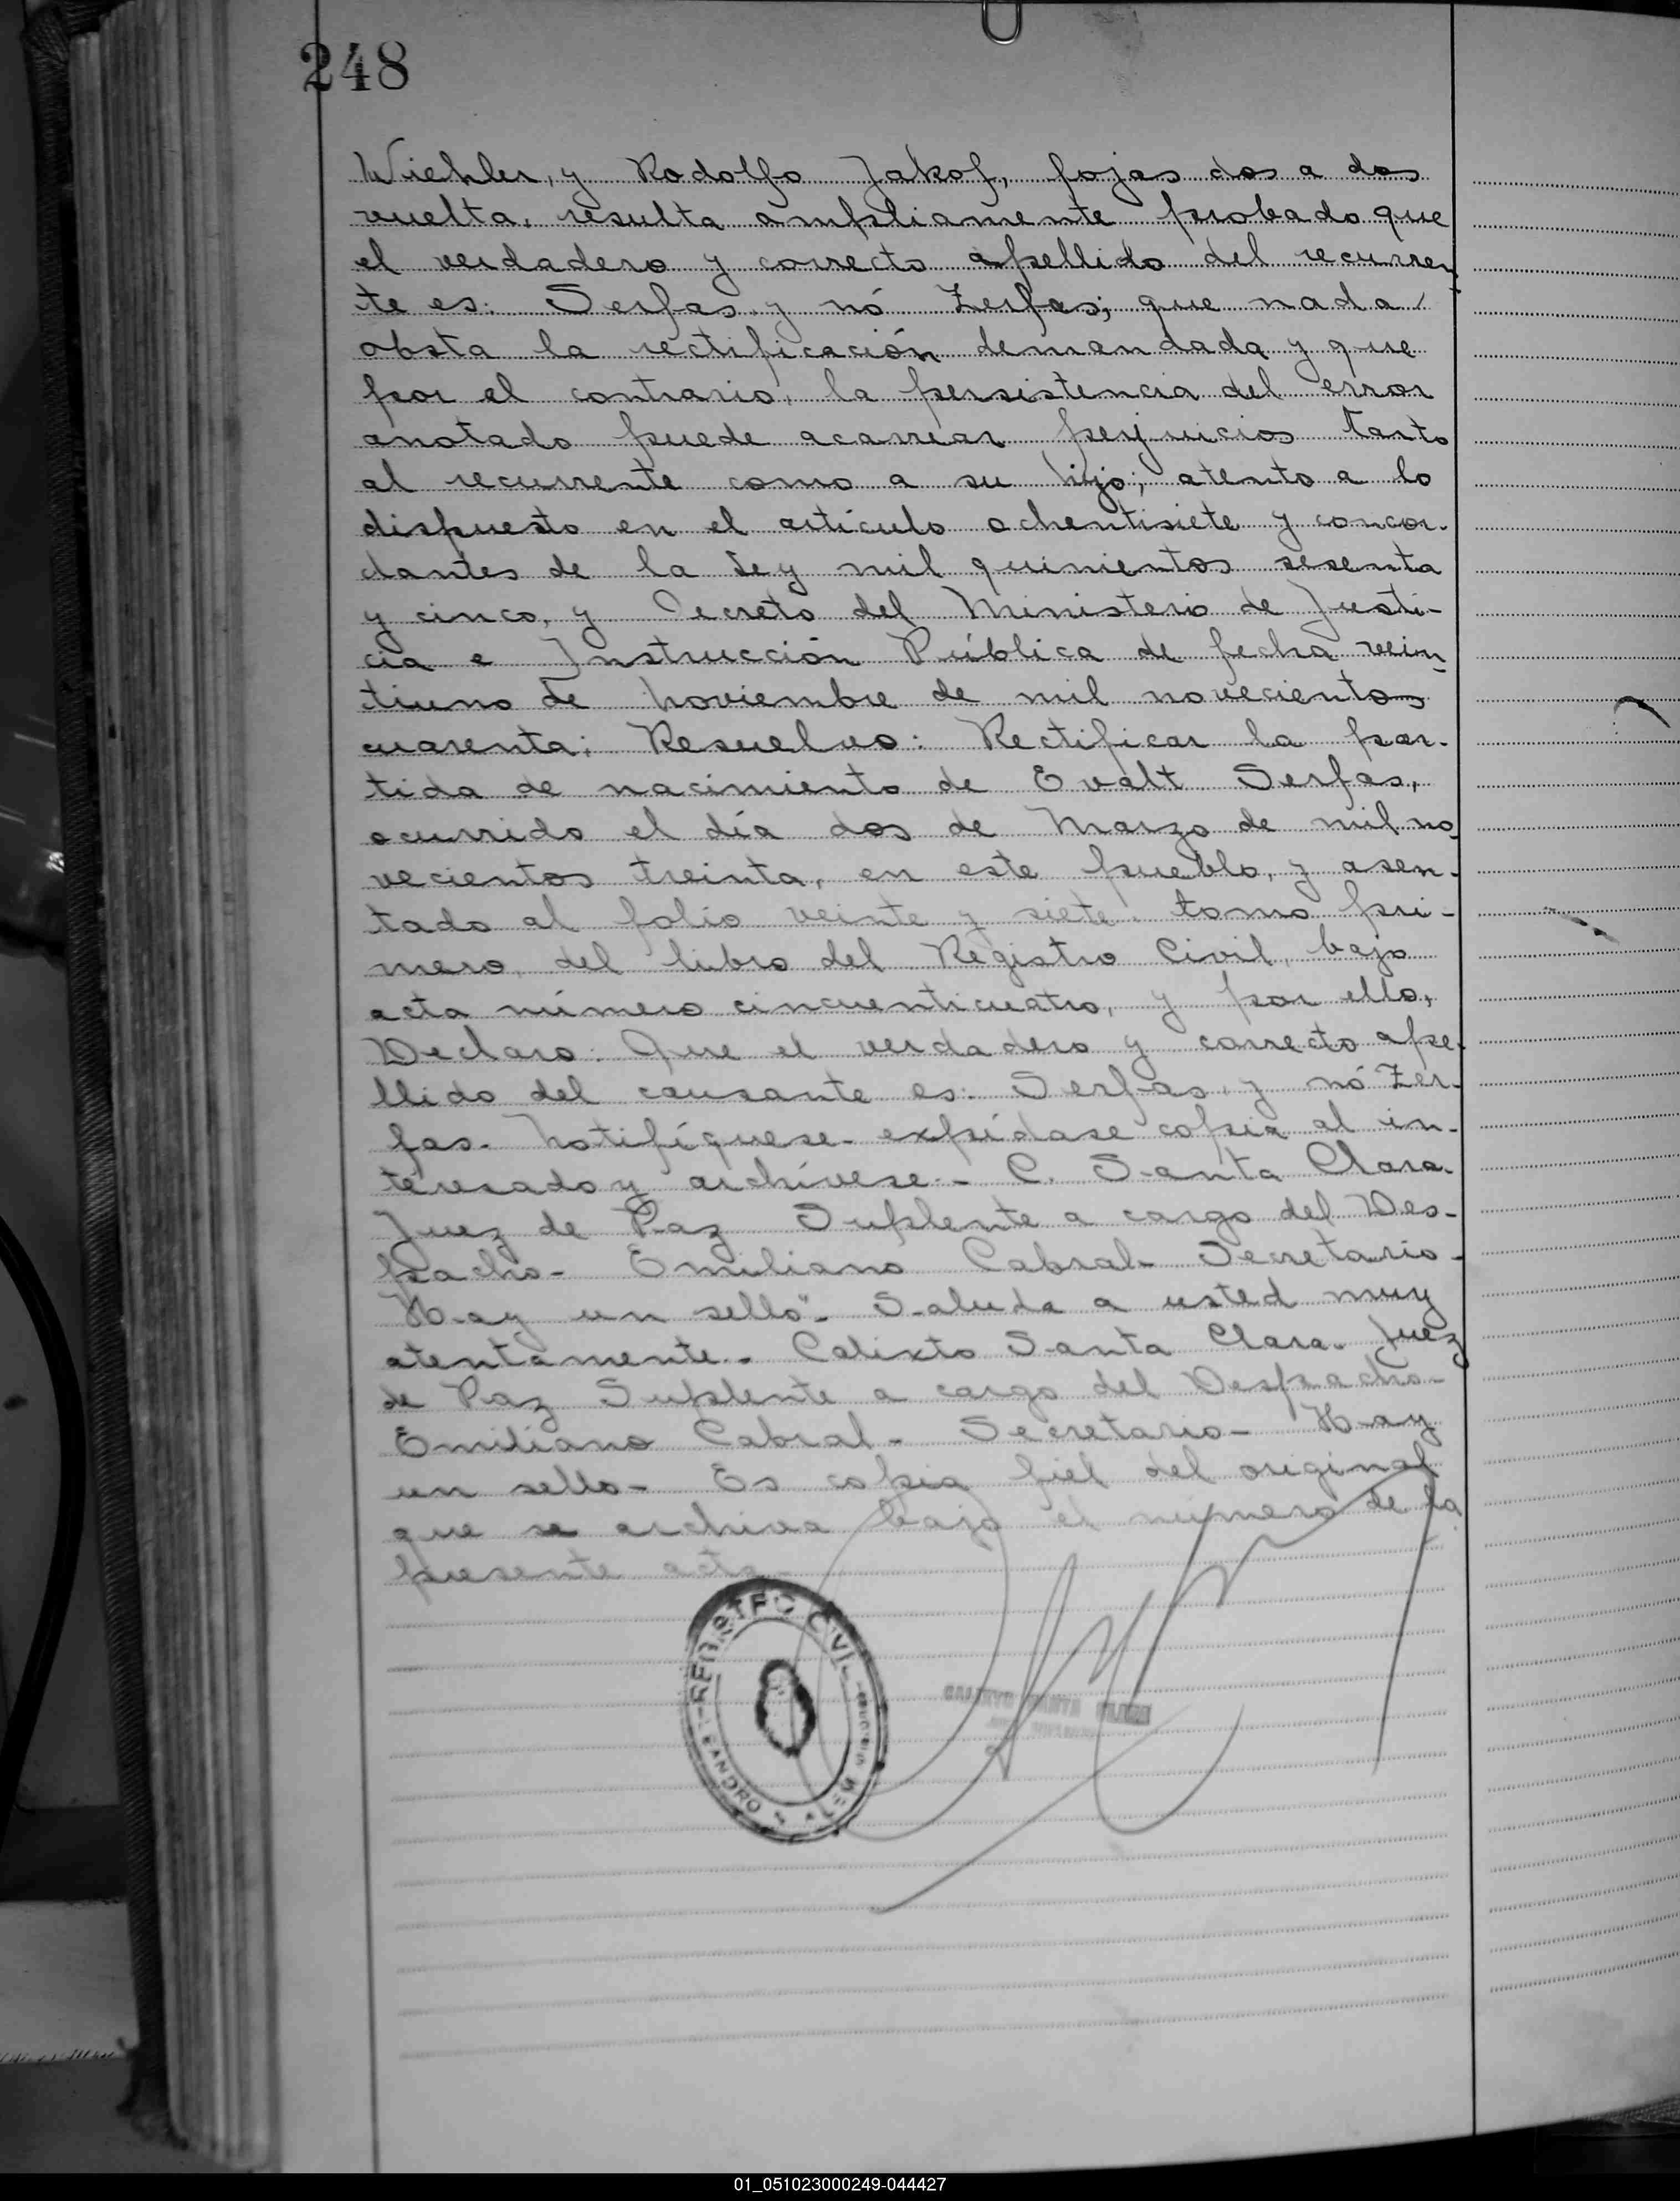 248
Wiehler, y Rodolfo Jakof, fojas dos a dos
vuelta, resulta ampliamente probado que
el verdadero y correcto apellido del recurren
te es: Serfas y nó Zerfas; que nada
obsta la rectificación demandada y que
por el contrario, la persistencia del error
anotado puede acarrear perjuicios tanto
al recurrente como a su hijo; atento a lo
dispuesto en el artículo ochentisiete y concor-
dantes de la Ley mil quinientos sesenta
y cinco, y Decreto del Ministerio de Justi-
cia e Instrucción Pública de fecha vein
tiuno de Noviembre de mil novecientos
cuarenta; Resuelvo: Rectificar la par-
tida de nacimiento de Evalt Serfas,
ocurrido el día dos de Marzo de mil no
vecientos treinta, en este pueblo, y asen-
tado al folio veinte y siete, tomo pri-
mero, del libro del Registro Civil, bajo
acta número cincuenticuatro, y por ello,
Declaro: Que el verdadero y correcto ape-
llido del causante es: Serfas, y nó Zer-
fas. Notifíquese- expídase copia al in-
teresado y archívese.- C. Santa Clara.
Juez de Paz Suplente a cargo del Des-
pacho- Emiliano Cabral- Secretario-
Hay un sello".- Saluda a usted muy
atentamente.- Calixto Santa Clara. Juez
de Paz Suplente a cargo del Despacho-
Emiliano Cabral- Secretario- Hay
un sello- Es copia fiel del original
que se archiva bajo el número de la
presente acta-
REGISTRO CIVIL
LEANDRO N. ALEM
01_051023000249-044427